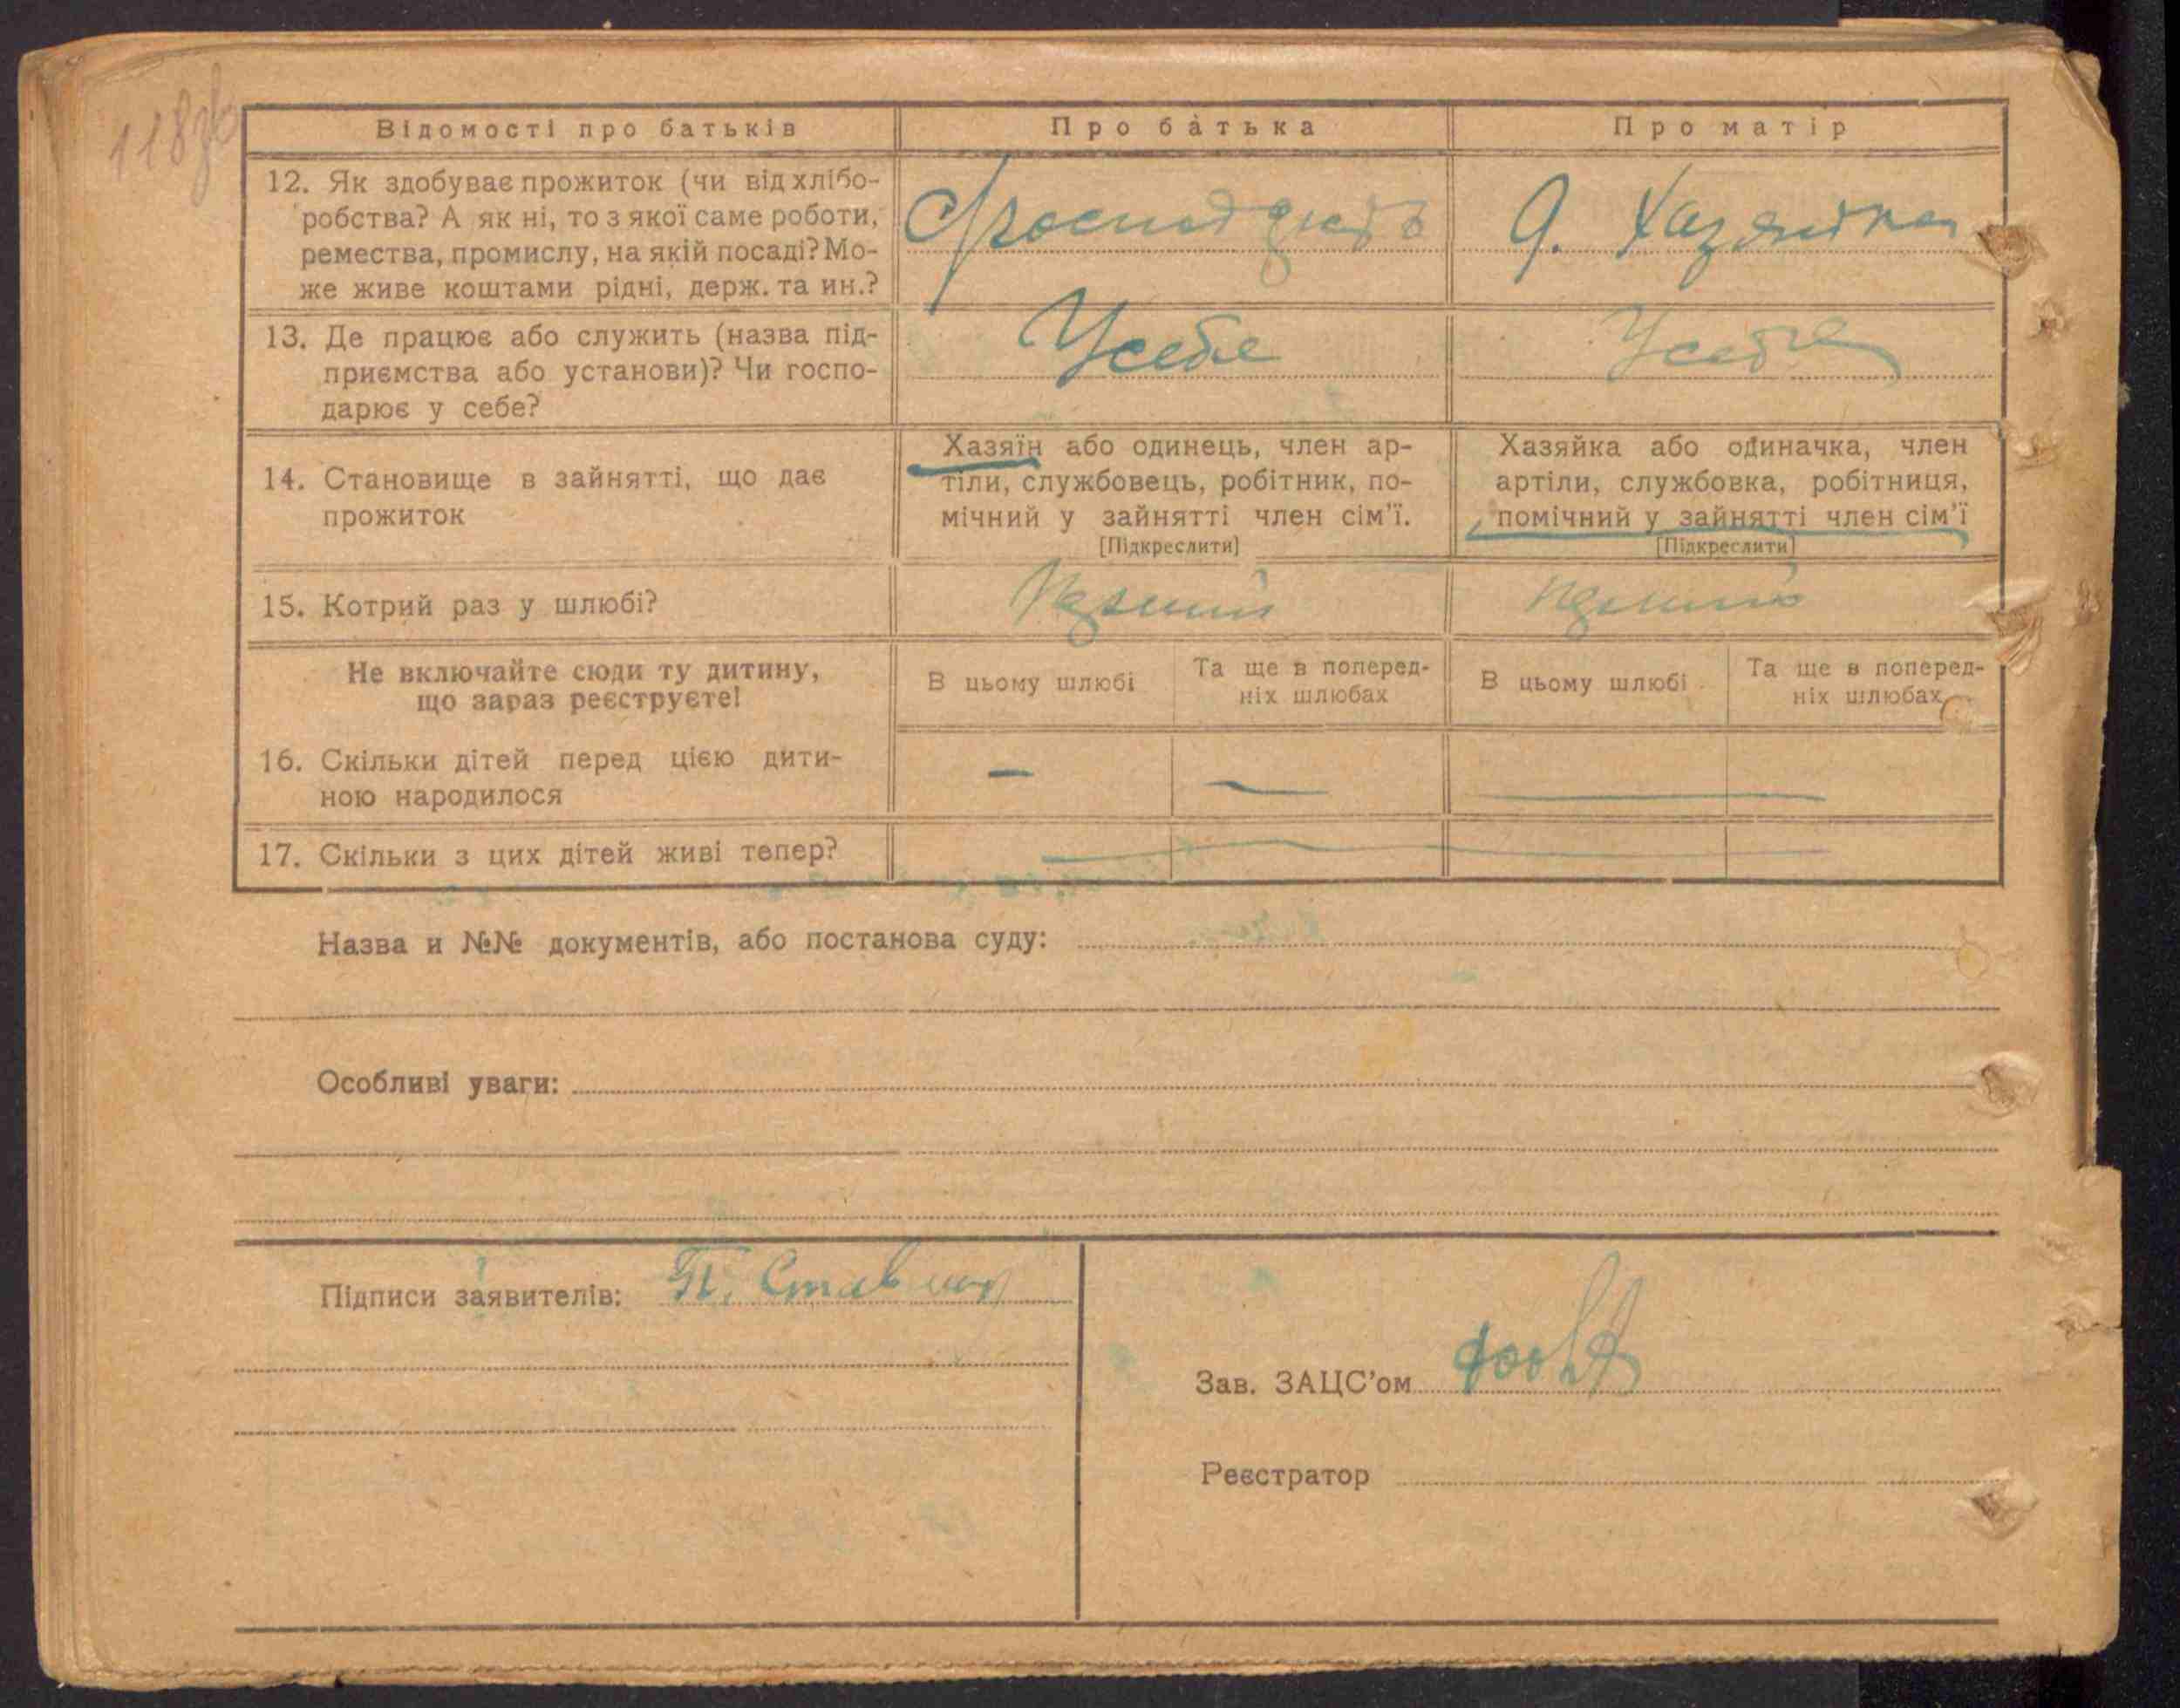 118зв
Відомості про батьків
Про батька
Про матір
12. Як здобуває прожиток (чи від хлібо-
робства? А як ні, то з якої саме роботи,
ремества, промислу, на якій посаді? Мо-
же живе коштами рідні, держ. та ин.?
Д. Хазяйка
13. Де працює або служить (назва під-
приємства або установи)? Чи госпо-
дарює у себе?
Усебе
Усебе
14. Становище в зайнятті, що дає
прожиток
Хазяїн або одинець, член ар-
тіли, службовець, робітник, по-
мічний у зайнятті член сім'ї.
[Підкреслити]
Хазяйка або одиначка, член
артіли, службовка, робітниця,
помічний у зайнятті член сім'ї
[Підкреслити]
15. Котрий раз у шлюбі?
Не включайте сюди ту дитину,
що зараз реєструєте!
В цьому шлюбі
Та ще в поперед-
ніх шлюбах
В цьому шлюбі
Та ще в поперед-
ніх шлюбах
16. Скільки дітей перед цією дити-
ною народилося
17. Скільки з цих дітей живі тепер?
Назва и №№ документів, або постанова суду:
Особливі уваги:
Підписи заявителів:
Зав. ЗАЦС'ом
Реєстратор